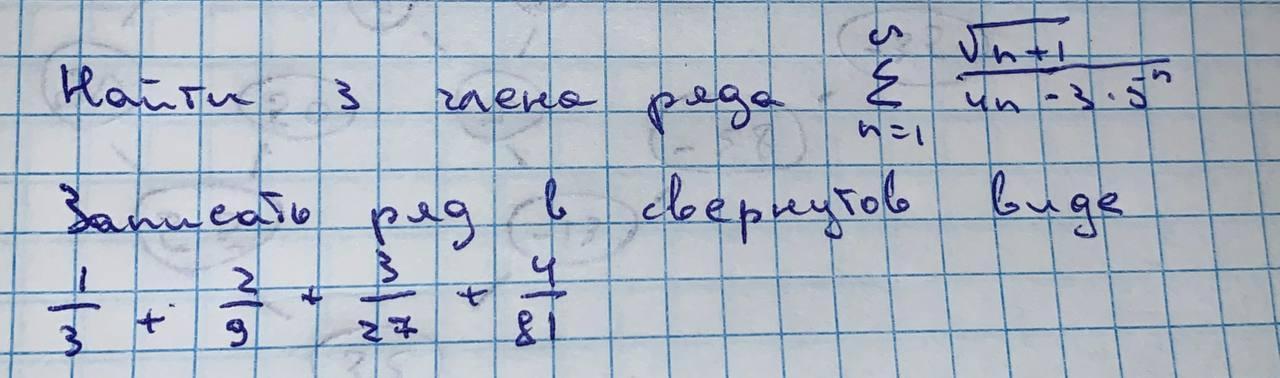 Найти 3 члена ряда $\sum_{n=1}^{5} \frac{\sqrt{n+1}}{4n-3 \cdot 5^n}$
Записать ряд в свернутов виде
$\frac{1}{3} + \frac{2}{9} + \frac{3}{27} + \frac{4}{81}$